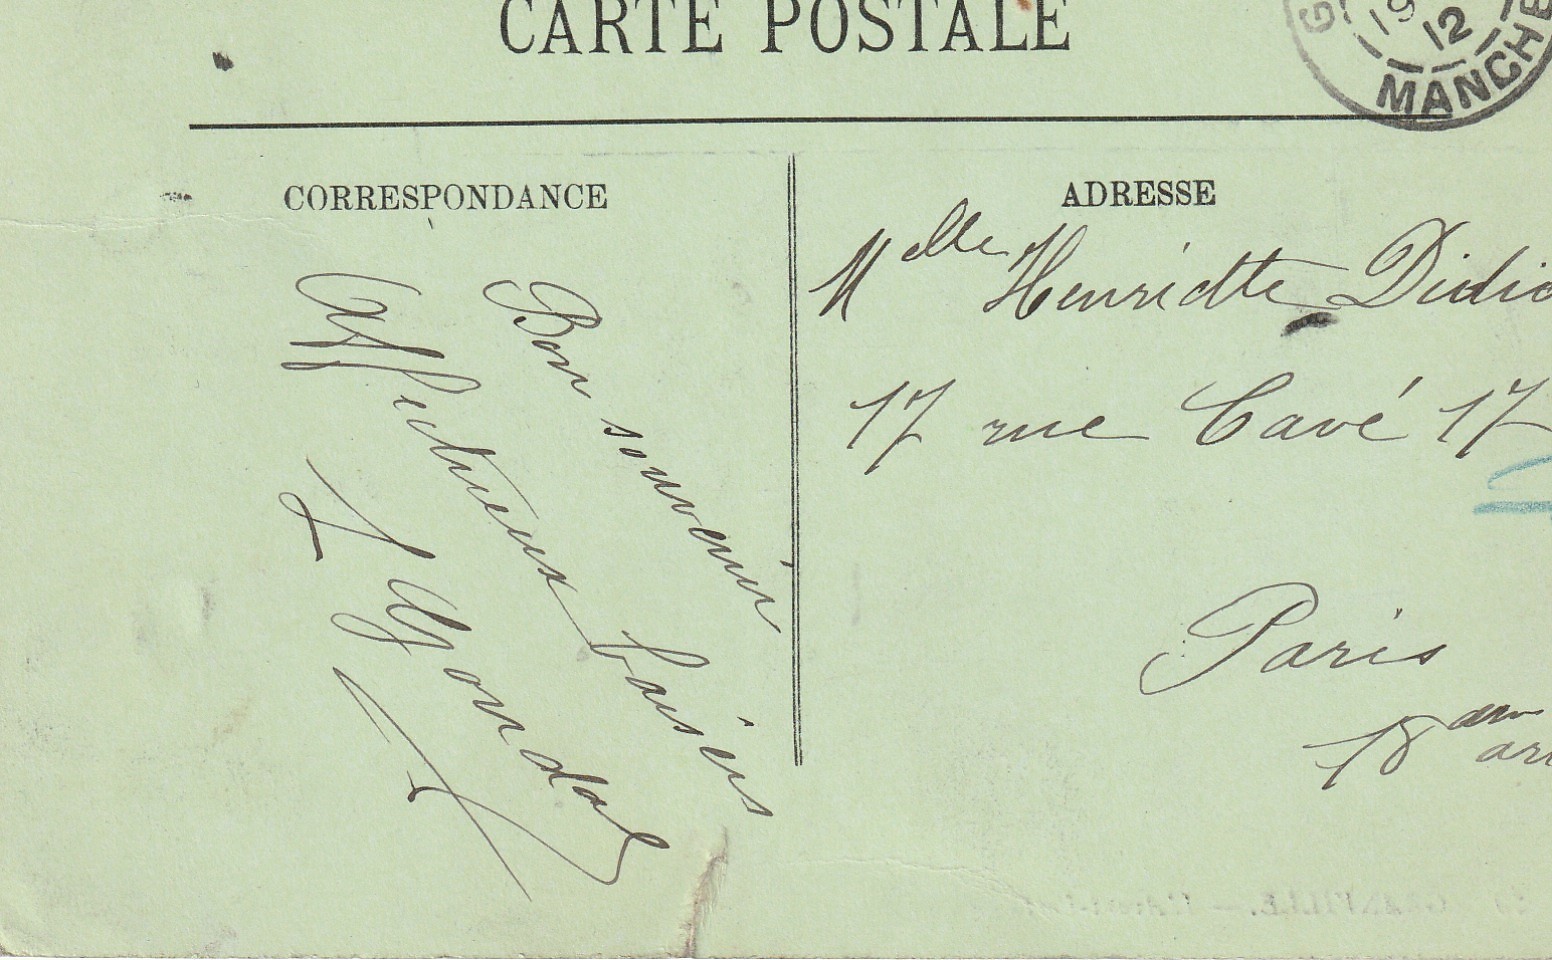 CARTE POSTALE
G
19
12
MANCHE
CORRESPONDANCE
Bon souvenir
Affectueux baisers
ADRESSE
Melle Henriette Didie
17 rue Cavé 17
Paris
18eme
arr
GRANVILLE. —